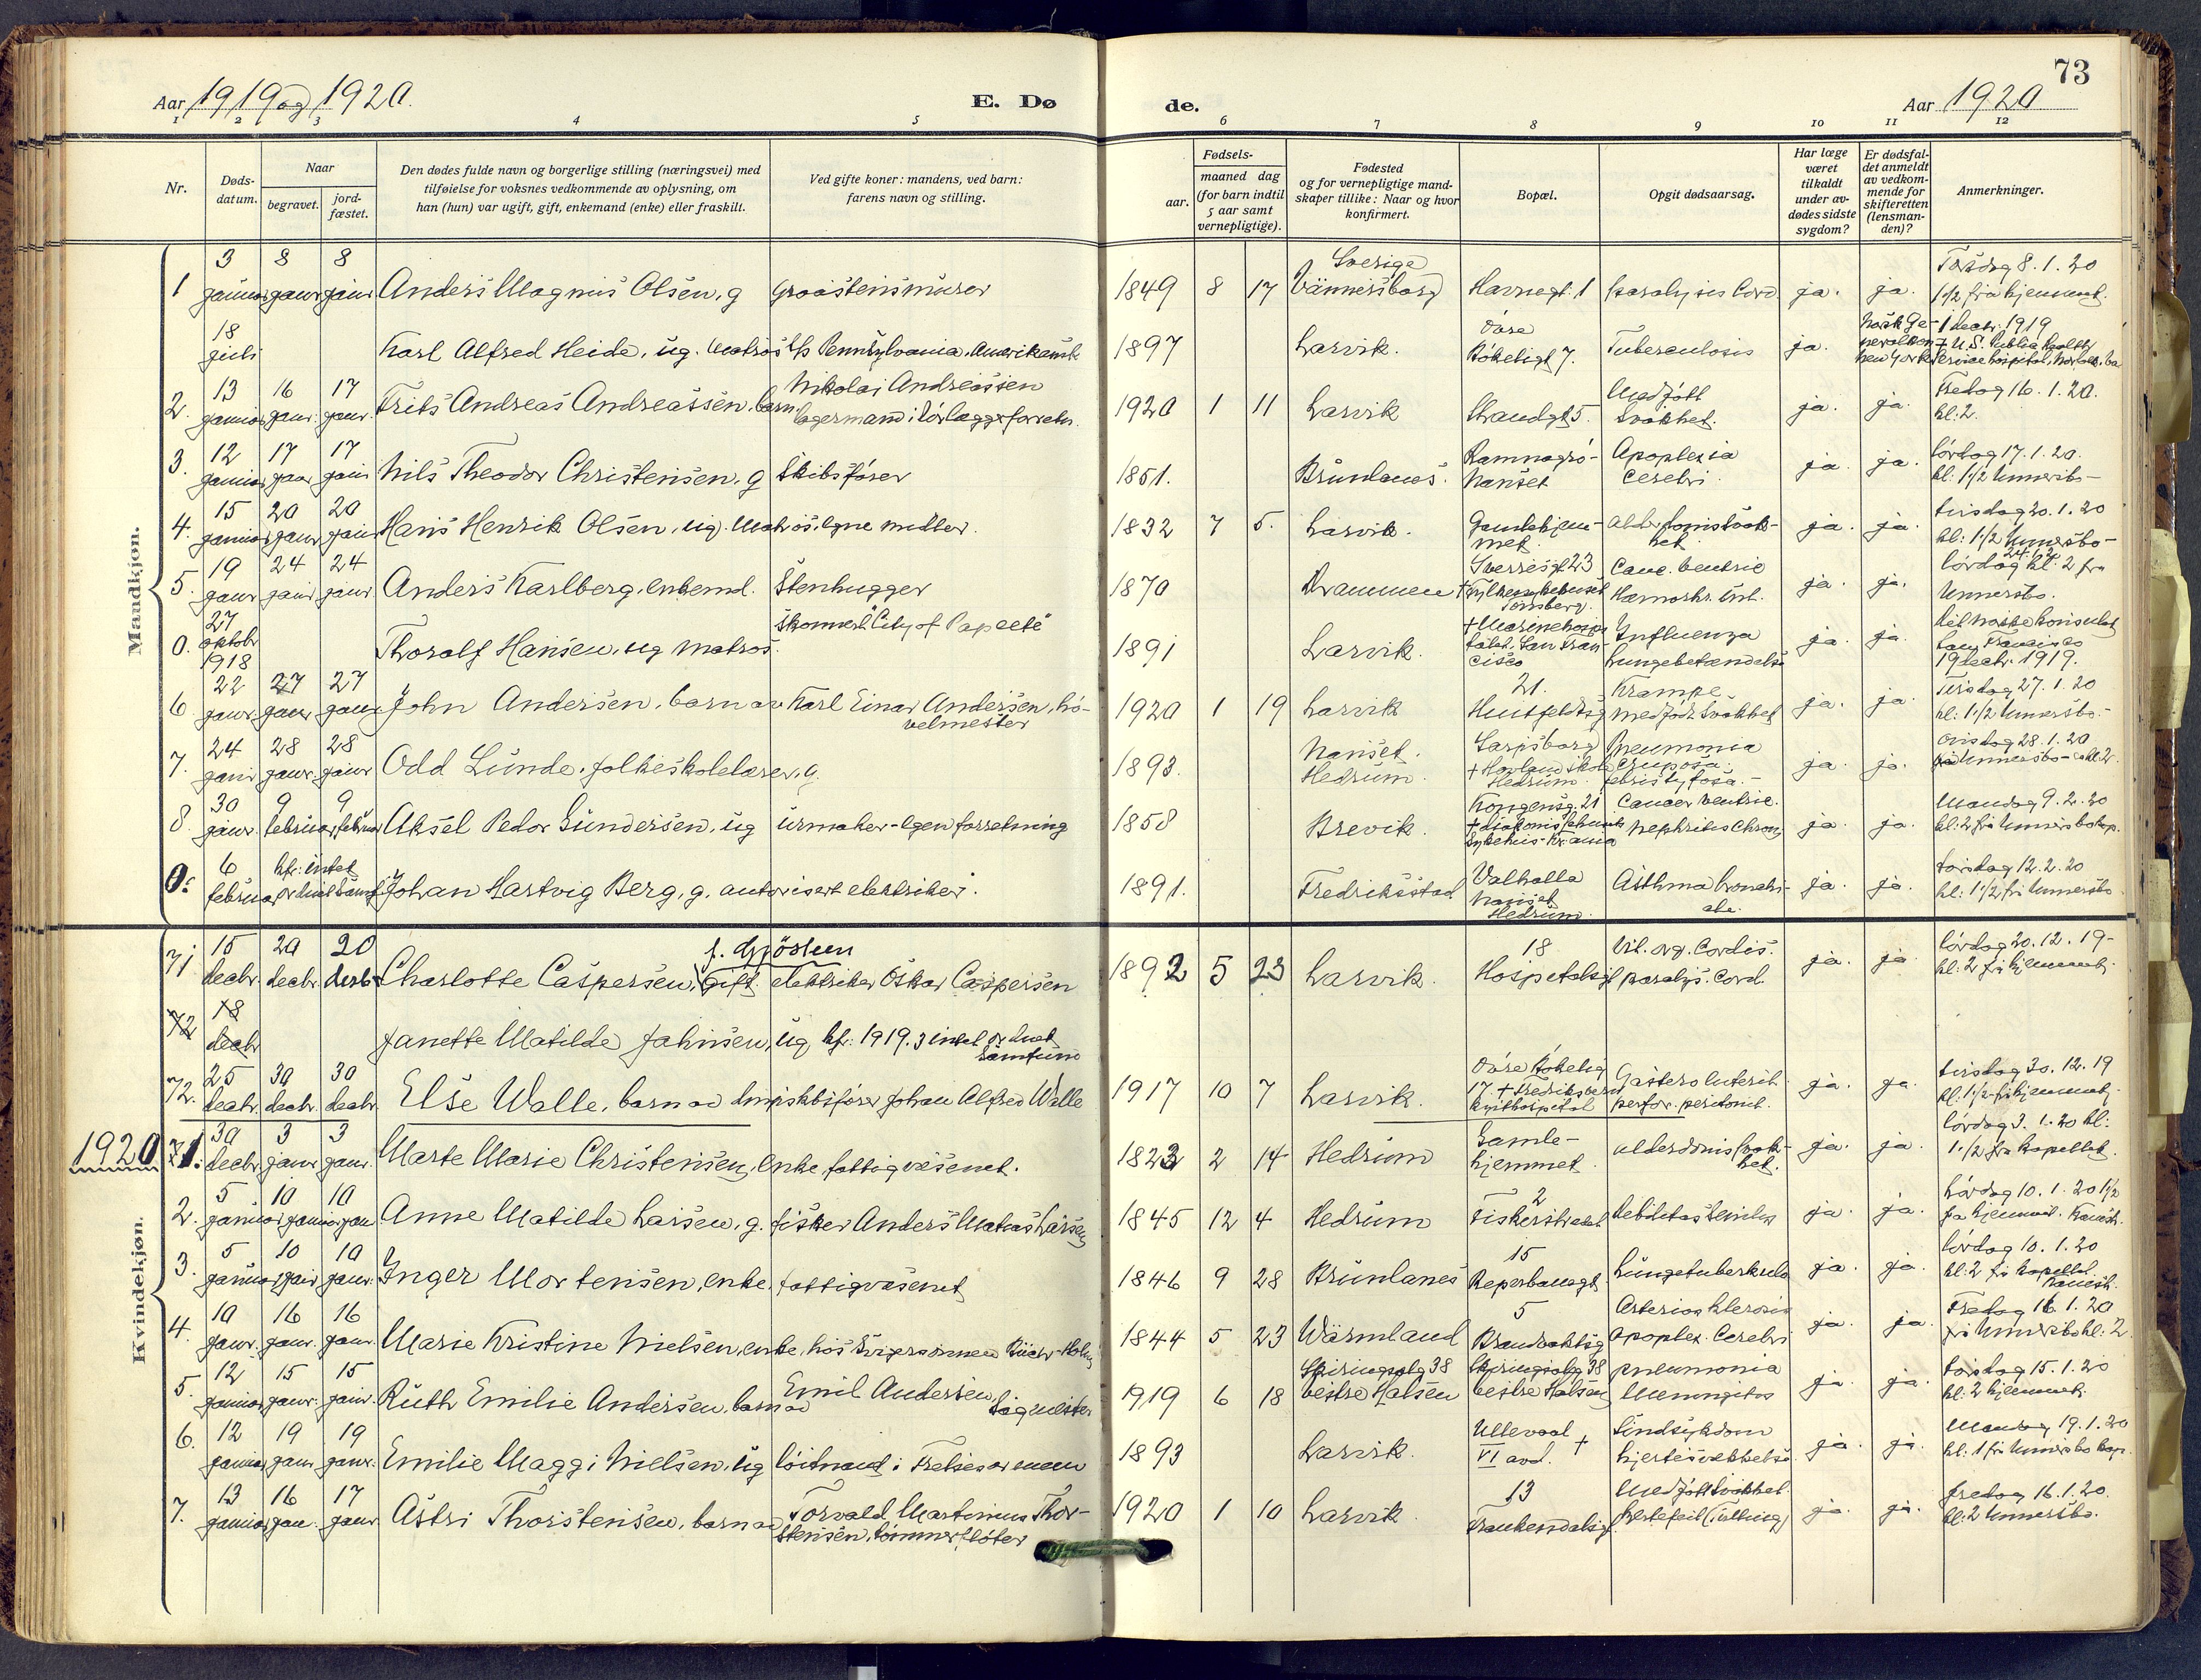 73
Aar 1919 og 1920.
E. Dø
de.
Aar 1920
1 2 3 4 5 6 7 8 9 10 11 12
Nr.
Døds-
datum.
Naar
begravet.
jord-
fæstet.
Den dødes fulde navn og borgerlige stilling (næringsvei) med
tilføielse for voksnes vedkommende av oplysning, om
han (hun) var ugift, gift, enkemand (enke) eller fraskilt.
Ved gifte koner: mandens, ved barn:
farens navn og stilling.
Fødsels-
aar.
maaned dag
(for barn indtil
5 aar samt
vernepligtige).
Fødested
og for vernepligtige mand-
skaper tillike: Naar og hvor
konfirmert.
Bopæl.
Opgit dødsaarsag.
Har læge
været
tilkaldt
under av-
dødes sidste
sygdom?
Er dødsfal-
det anmeldt
av vedkom-
mende for
skifteretten
(lensman-
den)?
Anmerkninger.
Mandkjøn.
1 3 januar 8 janr 8 janr Anders Magnus Olsen, g graastensmurer 1849 8 17 Sverige Vännersborg Havnegt. 1 paralysis Cord ja. ja. Torsdag 8.1.20 1 1/2 fra hjemmet.
18 juli Karl Alfred Heide, ug. matros s/s Pennsylvania, Amerikansk 1897 Larvik. Øvre Bøkeligt 7. Tuberculosis ja. 1 decbr. 1919
2. 13 januar 16 janr. 17 janr. Frits Andreas Andreassen, barn Nikolai Andreassen lagermand i 1920 1 11 Larvik Strandgt 5. Medfødt Svakhet. ja. ja. Fredag 16.1.20. kl: 2.
3. 12 januar 17 janr 17 janr Nils Theodor Christensen, g Skibsfører 1851. Brunlanes. Nanset Apoplexia cerebri. ja. ja. lørdag 17.1.20. kl: 1 1/2 Unnersbo-
4. 15 januar 20 janr 20 janr Hans Henrik Olsen, ug. Matros, egne midler. 1832 7 5. Larvik. Gamlehjem-met. alderdomssvak-het. ja. ja. tirsdag 20.1.20 kl: 1 1/2 Unnersbo-
5. 19 janr 24 janr 24 janr Anders Karlberg, enkemd. Stenhugger 1870 Drammen Sverresgt 23 Tønsberg. Canc. ventric Hæmorhr. int. ja. ja. lørdag kl: 2 fra Unnersbo.
0. 27 oktobr 1918 Thoralf Hansen, ug matros. Skonnert "City of Papeete" 1891 Larvik. San Fran-cisco Influenza Lungebetændelse ja. ja. det norske konsulat San Francisco 19 decbr. 1919.
6 22 janr. 27 janr 27 janr John Andersen, barn av Karl Einar Andersen, hø-velmester 1920 1 19 Larvik 21. Huitfeldtsg Krampe medfødt Svakhet ja. ja. Tirsdag 27.1.20 kl: 1 1/2 Unnersbo.-
7. 24 janr 28 janr. 28 janr Odd Lunde, folkeskolelærer, g. 1893. Nanset. Hedrum. Sarpsborg Hedrum. Pneumonia cruposa. ja. ja. onsdag 28.1.20 fra Unnersbo- kl 2.
8. 30 janr. 9 februar 9 februar Aksel Peder Gundersen, ug urmaker - egen forretning 1858 Brevik. Kongensg. 21 Cancer ventric. nephritis chron. ja. ja. Mandag 9.2.20 kl: 2 fra Unnersbo kap.
0: 6 februar kfr: intet ordnet Samf Johan Hartvig Berg, g. autorisert elektriker. 1891. Fredriksstad Valhalla Nanset Hedrum. Asthma bronchi-ale. ja. ja. torsdag 12.2.20 kl: 1 1/2 fra Unnersbo
Kvindekjøn.
71 15 decbr. 20 decbr. 20 Charlotte Caspersen, gift. elektriker Oskar Caspersen 1892 5 23 Larvik. 18 Hospetalsgt Vit. org. Cordis. paralys. Cord. ja. ja. lørdag 20.12.19- kl: 2 fra hjemmet.
72 18 decbr Janette Matilde Jahnsen, ug, kfr: 1919. 3 intet ordnet Samfund
72. 25 decbr. 30 decbr. 30 decbr. Else Walle, barn av Johan Alfred Walle 1917 10 7 Larvik. Øvre Bøkelig 17. Gastero Enterit. perfor. peritonit. ja. ja. tirsdag 30.12.19 kl. 1 1/2 fra hjemmet.
1920 1. 30 decbr 3 janr 3 janr. Marte Marie Christensen, enke, fattigvæsenet. 1823 2 14 Hedrum Gamle-hjemmet. alderdomssvak-het. ja. ja. lørdag 3.1.20 kl: 1 1/2 fra kapellet.
2. 5 januar 10 januar 10 jan Anne Matilde Larsen, g. fisker Anders Matias Larsen 1845 12 4 Hedrum 2 Fiskerstrædet debilitas senilis ja. ja. Lørdag 10.1.20 1 1/2 fra hjemmet.
3. 5 januar 10 janr 10 janr. Inger Mortensen, enke. fattigvæsenet 1846 9 28 Brunlanes 15 Reperbanegt Lungetuberkulo ja. ja. lørdag 10.1.20 kl: 2 fra kapellet.
4. 10 janr. 16 janr. 16 janr. Marie Kristine Nielsen, enke, hos Svigersønnen 1844 5 23 Wärmland 5 Brandvaktsg Arteriosklerosis apoplex. Cerebri ja. ja. Fredag 16.1.20 fra Unnersbo kl: 2
5. 12 januar 15 janr. 15 janr. Ruth Emilie Andersen, barn av Emil Andersen, Sagmester 1919 6 18 Skiringsalg 38 vestre Halsen Skiringsalg 38 vestre Halsen pneumonia Meningitis ja. ja. torsdag 15.1.20 kl: 2 hjemmet.
6. 12 januar 19 janr 19 janr. Emilie Maggi Nielsen, ug løitnant i Frelsesarmeen 1893 Larvik. Ullevaal + VI avd. Sindsykdom hjertesvækkelse ja. ja. Mandag 19.1.20 kl: 1 fra Unnersbo kap.
7. 13 januar 16 jan. 17 janr Astri Thorstensen, barn av Torvald Martinius Thor-stensen, tømmerfløter 1920 1 10 Larvik. 13 Frankendalsgt Medfødt Svakhet hjertefeil (Tvilling) ja. ja. fredag 16.1.20. kl: 2 Unnersbo.